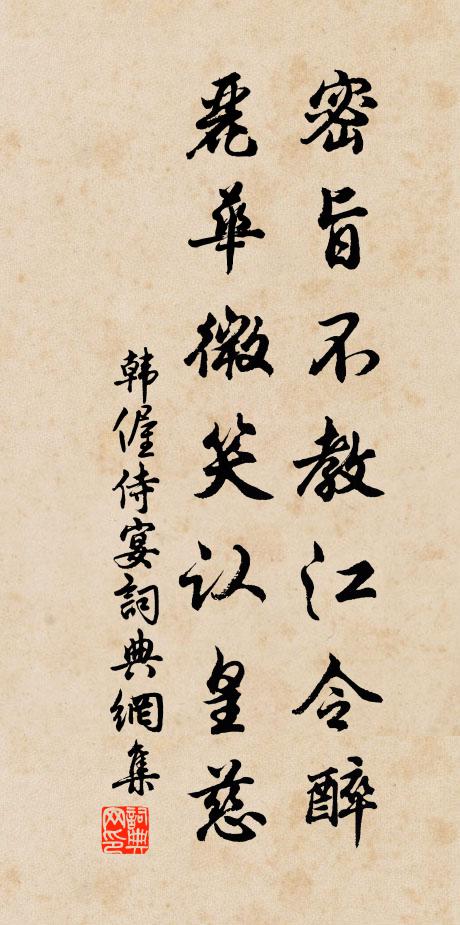 密旨不教江令醉
麗華微笑认皇慈
韓偓侍宴詞典網集
詞典网印